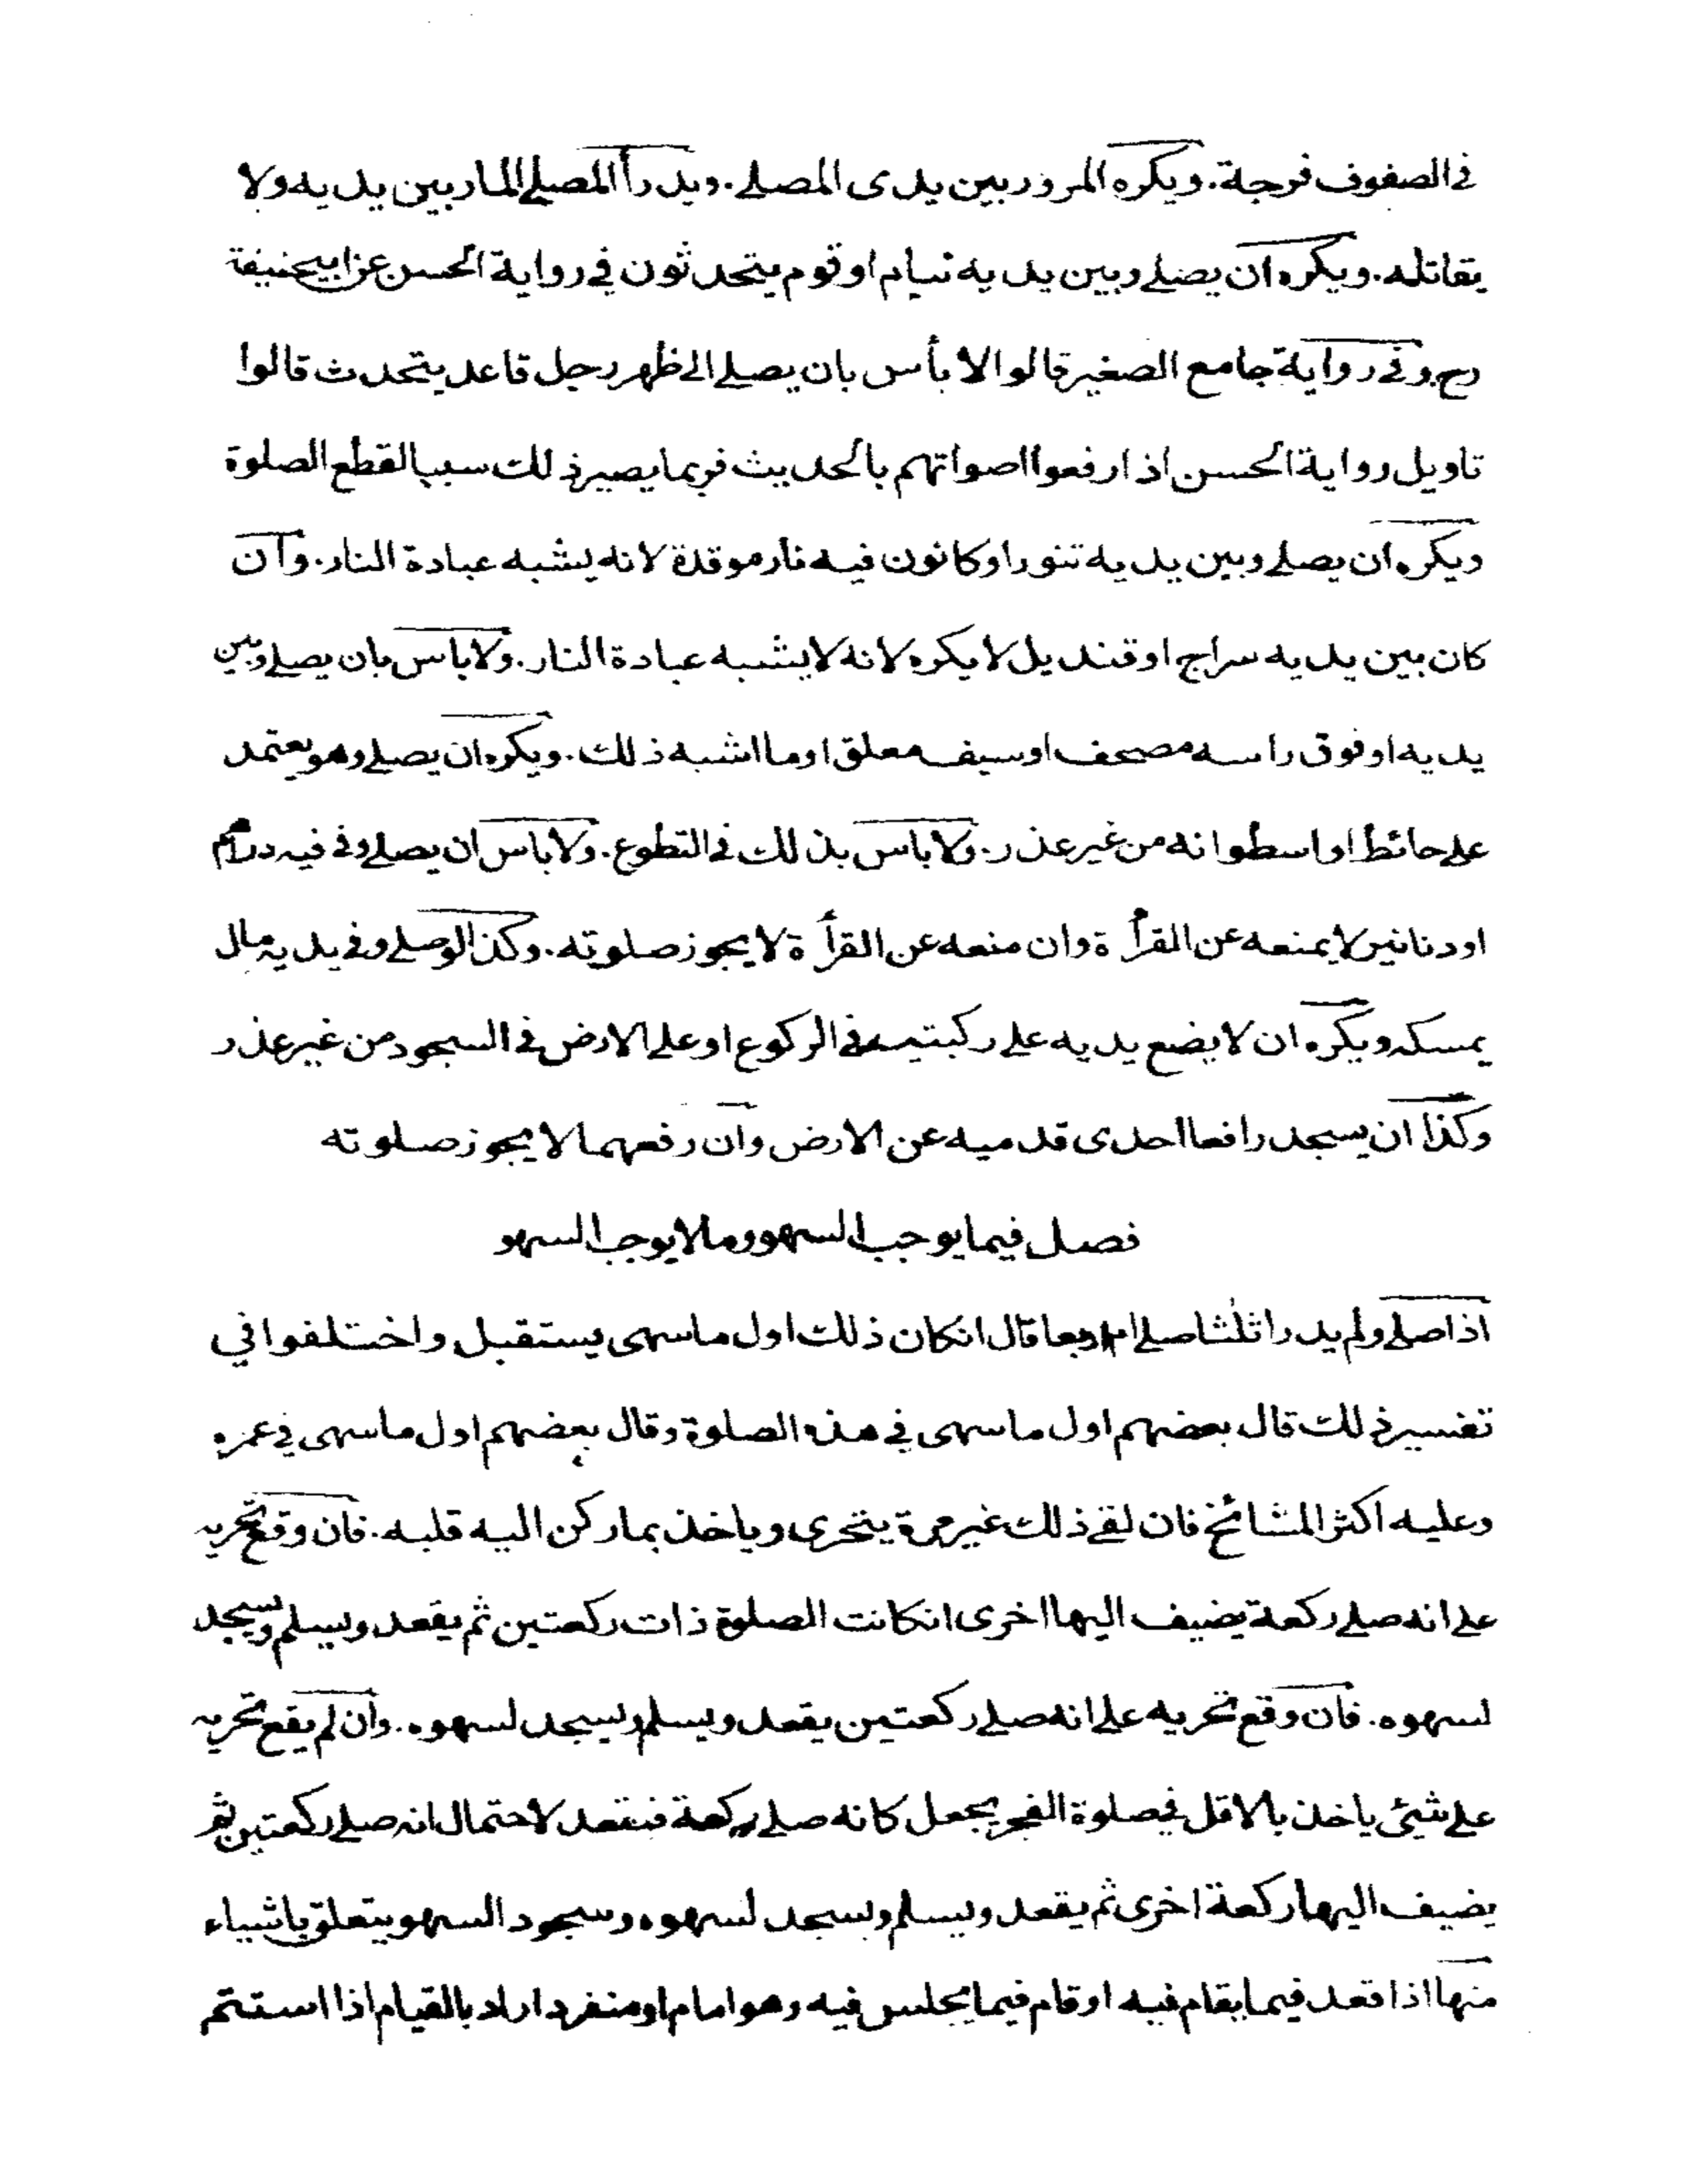 في الصفوف فرجة. ويكره المرور بين يدى المصلے. ويدرأ المصلے المار بين يديه ولا
يقاتله. ويكره ان يصلے وبين يديه نيام او قوم يتحدثون في رواية الحسن عن ابيحنيفة
رح. وفى رواية جامع الصغير قالوا لا بأس بان يصلے الى ظهر رجل قاعد يتحدث قالوا
تاويل رواية الحسن اذا رفعوا اصواتهم بالحديث فربما يصير ذلك سببا لقطع الصلوة
ويكره ان يصلے وبين يديه تنور او كانون فيه نار موقدة لانه يشبه عبادة النار. وان
كان بين يديه سراج او قنديل لا يكره لانه لا يشبه عبادة النار. ولا باس بان يصلے وبين
يديه او فوق راسه مصحف او سيف معلق او ما اشبه ذلك. ويكره ان يصلے وهو يعتمد
علے حائط او اسطوانه من غير عذر. ولا باس بذلك فى التطوع. ولا باس ان يصلے وفى فيه دراهم
او دنانير لا يمنعه عن القرأة وان منعه عن القرأة لا يجوز صلوته. وكذا لو صلے وفى يديه مال
يمسكه ويكره ان لا يضع يديه علے ركبتيه فى الركوع او علے الارض فى السجود من غير عذر
وكذا ان يسجد رافعا احدى قدميه عن الارض وان رفعهما لا يجوز صلوته
فصل فيما يوجب السهو وما لا يوجب السهو
اذا صلے ولم يدر اثلثا صلے ام اربعا قال انكان ذلك اول ما سهى يستقبل واختلفوا في
تفسير ذلك قال بعضهم اول ما سهى في هذه الصلوة وقال بعضهم اول ما سهى في عمره
وعليه اكثر المشائخ فان لقے ذلك غير مرة يتحرى وياخذ بما ركن اليه قلبه. فان وقع تحريه
علے انه صلے ركعة يضيف اليها اخرى انكانت الصلوة ذات ركعتين ثم يقعد ويسلم ويسجد
لسهوه. فان وقع تحريه علے انه صلے ركعتين يقعد ويسلم ويسجد لسهوه. وان لم يقع تحريه
علے شيئ ياخذ بالاقل فے صلوة الفجر يجعل كانه صلے ركعة فيقعد لاحتمال انه صلے ركعتين ثم
يضيف اليها ركعة اخرى ثم يقعد ويسلم ويسجد لسهوه وسجود السهو يتعلق باشياء
منها اذا قعد فيما يقام فيه او قام فيما يجلس فيه وهو امام او منفرد اراد بالقيام اذا استتم